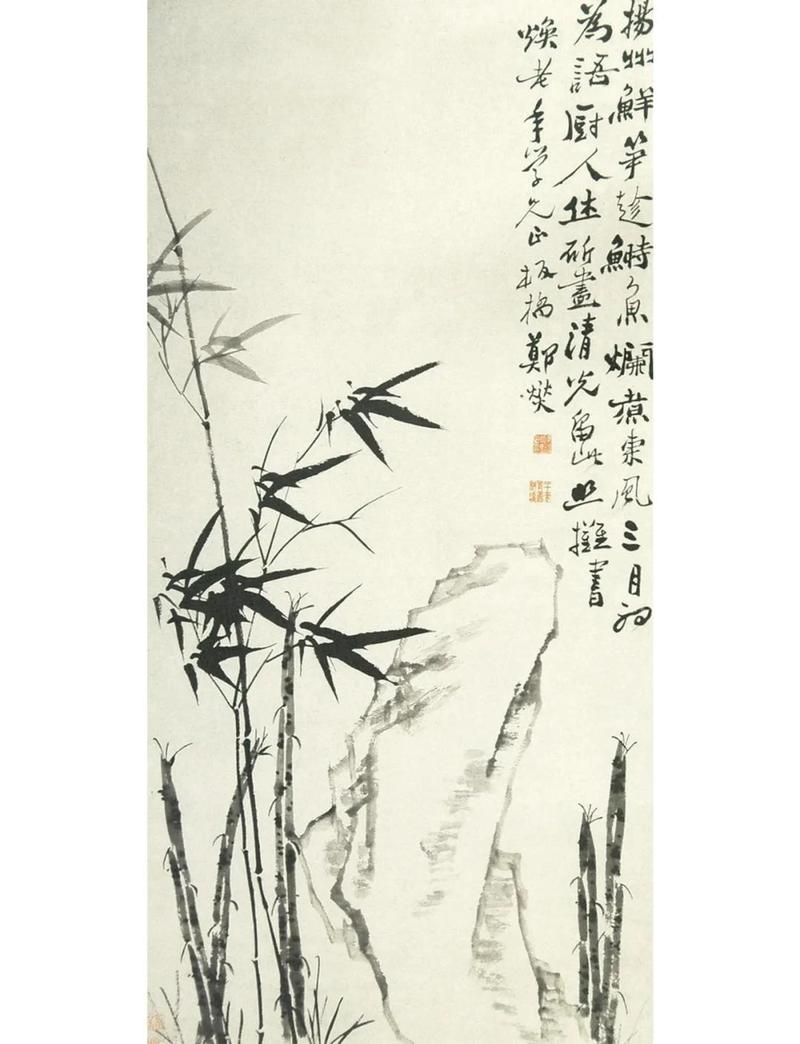 揚州鮮笋趁鰣魚爛煮東風三月初
為語厨人休斫盡清光留此照攤書
煥老年學兄正板橋鄭燮